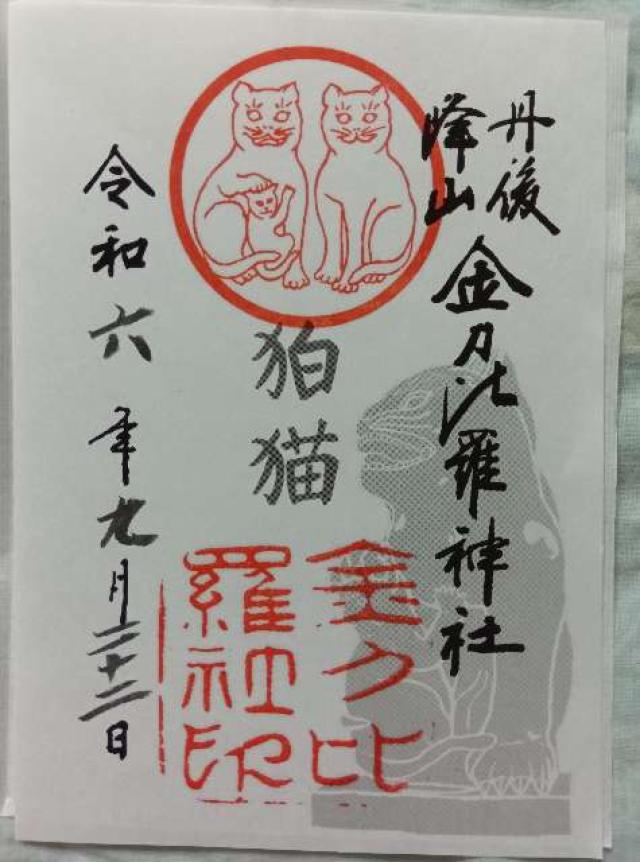 丹後
峰山
金刀比羅神社
狛猫
金刀比
羅社印
令和六年九月二十二日